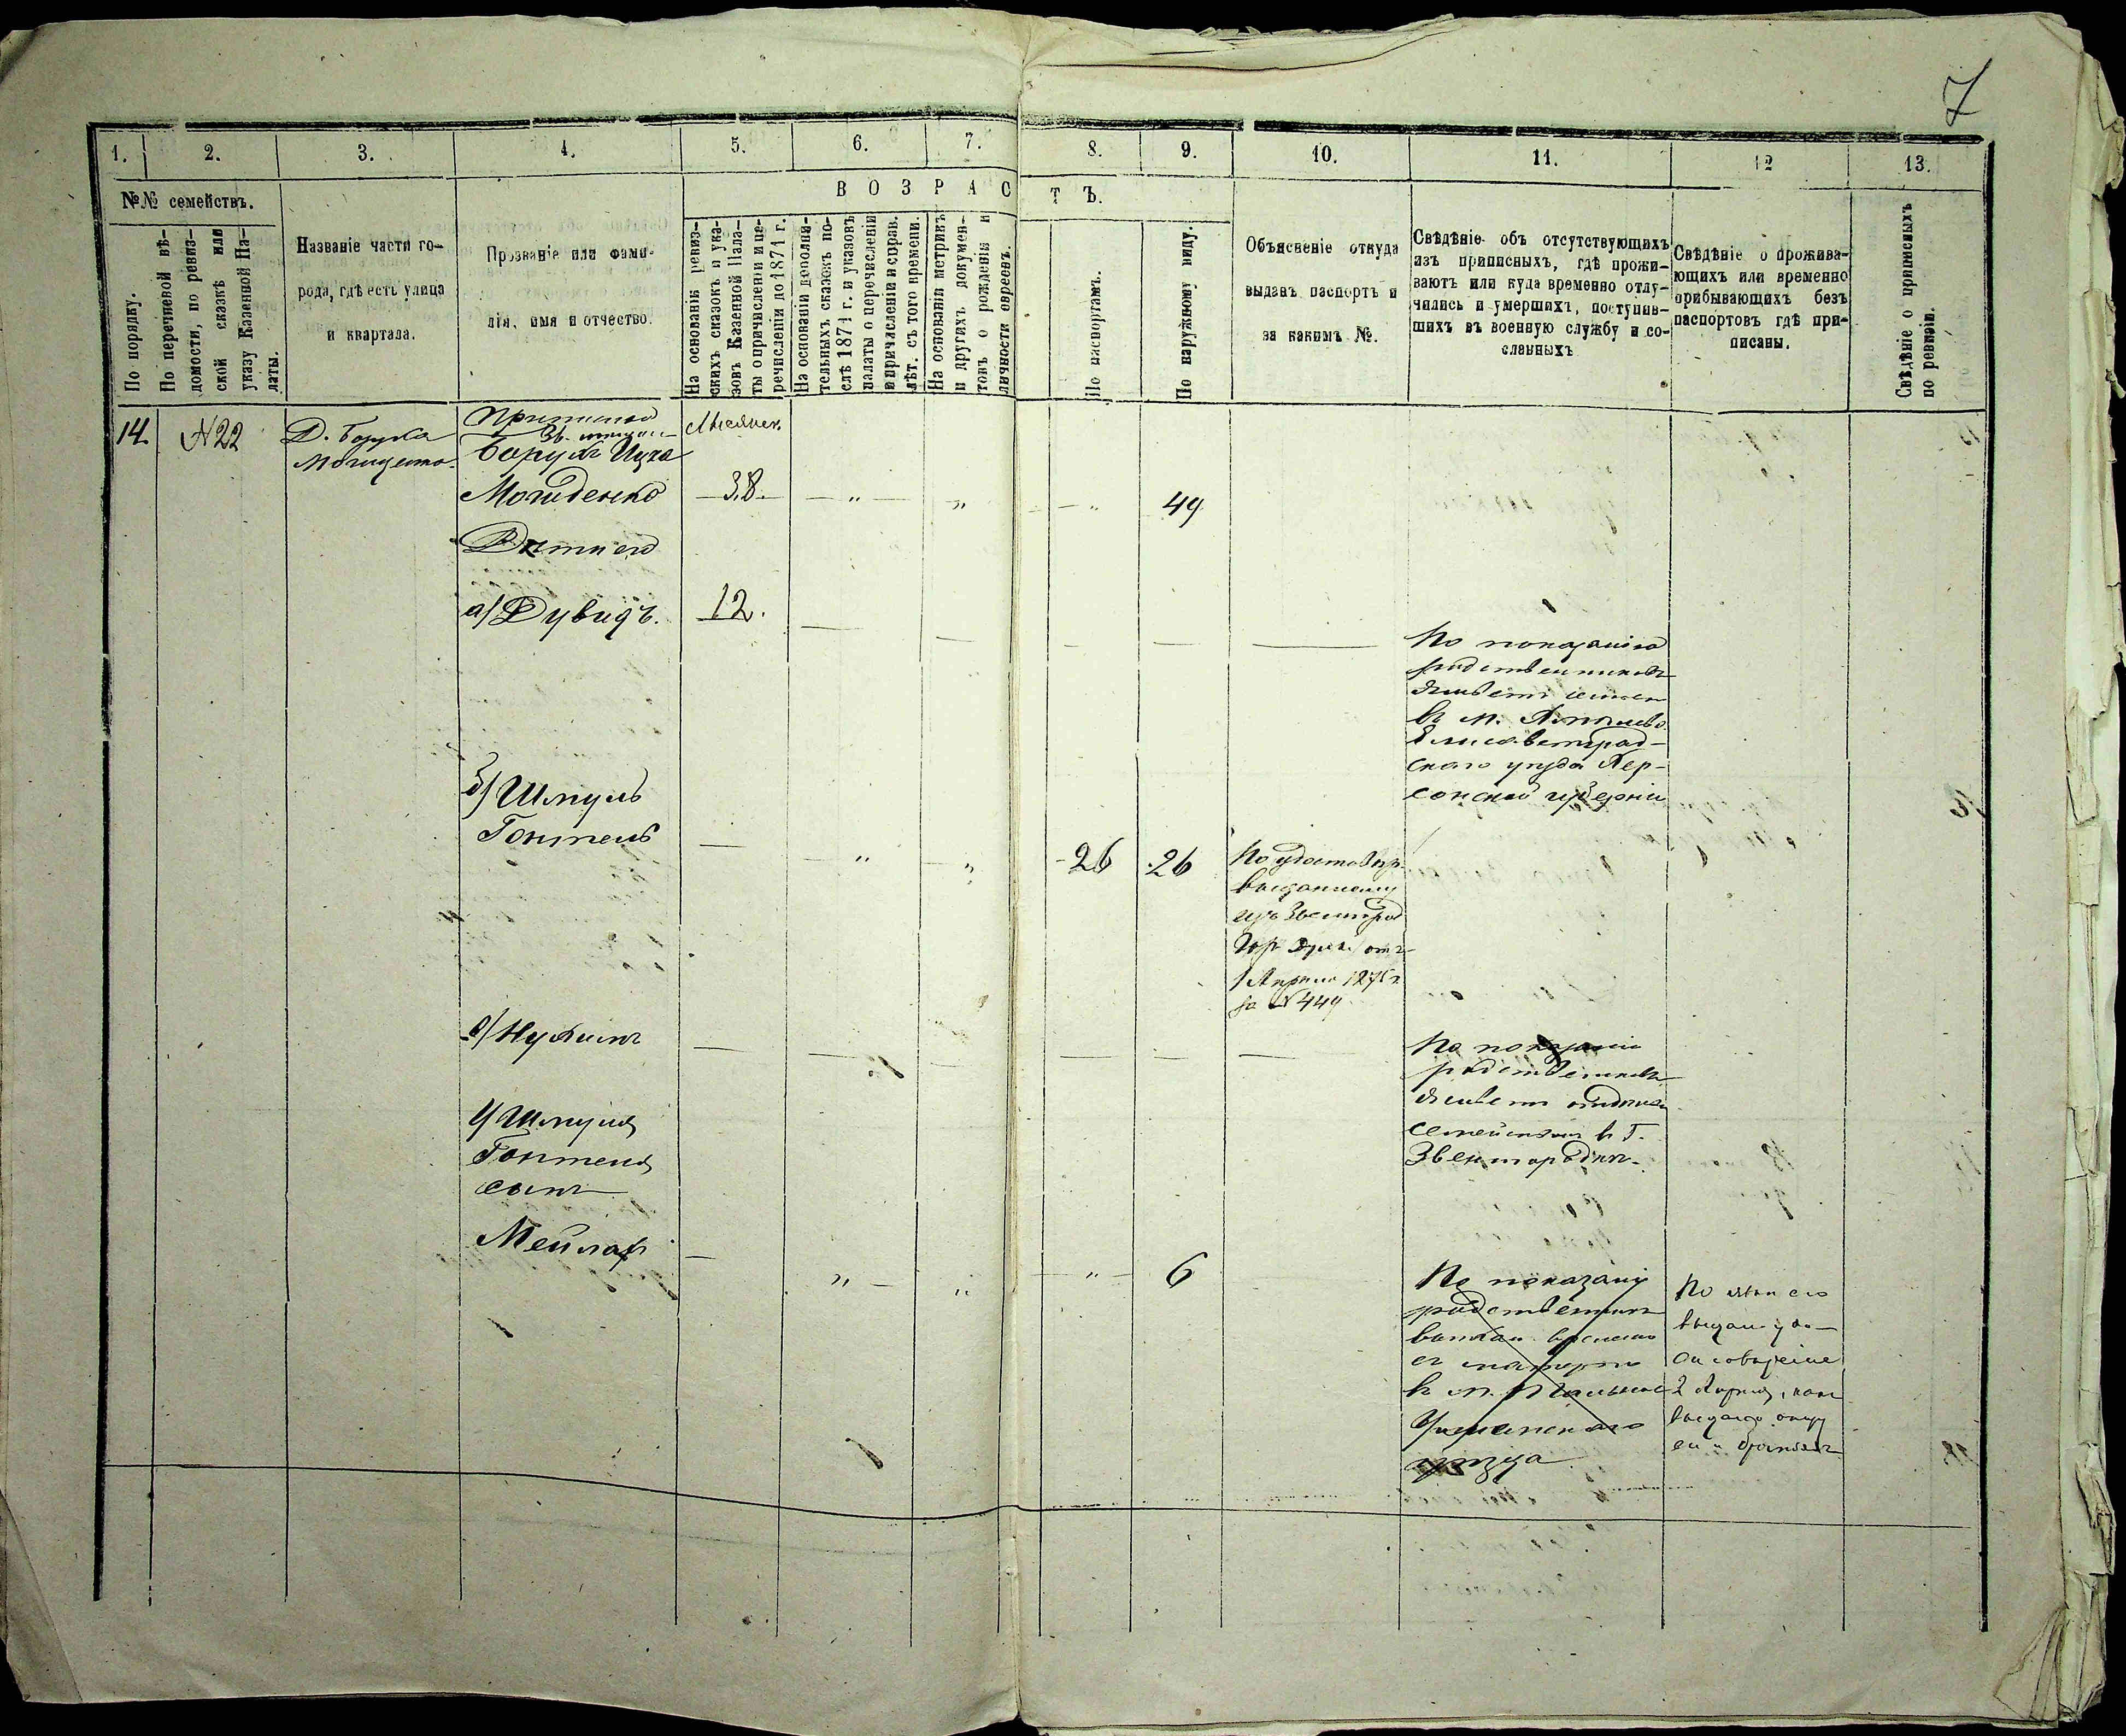 7
1. 2. 3. 4. 5. 6. 7. 8. 9. 10. 11. 12 13.
№№ семействъ.
По порядку.
По перечневой вѣ-
домости, по ревиз-
ской сказкѣ или
указу Казенной Па-
латы.
Названіе части го-
рода, гдѣ есть улица
и квартала.
Прозваніе или фами-
лія, имя и отчество.
ВОЗРАСТЪ.
На основаніи ревиз-
скихъ сказокъ и ука-
зовъ Казенной Пала-
ты о причисленіи и пе-
речисленіи до 1871 г.
На основаніи дополни-
тельныхъ сказокъ по-
слѣ 1871 г. и указовъ
палаты о перечисленіи
и причисленіи и справ.
лѣт. съ того времени.
На основаніи метрикъ
и другихъ докумен-
товъ о рожденіи и
личности евреевъ.
По паспортамъ.
По наружному виду.
Объясненіе откуда
выданъ паспортъ и
за какимъ №.
Свѣдѣніе объ отсутствующихъ
изъ приписныхъ, гдѣ прожи-
ваютъ или куда временно отлу-
чились и умершихъ, поступив-
шихъ въ военную службу и со-
сланныхъ
Свѣдѣніе о прожива-
ющихъ или временно
прибывающихъ безъ
паспортовъ гдѣ при-
писаны.
Свѣдѣніе о приписныхъ
по ревизіи.
14. N22 Д. Боруха
Борухъ Ицка
Могиденко 38. " " " 49
Дѣти его
а) Дувидъ. 12.
По показанію
родственниковъ
живетъ
въ м.
Елисаветград-
скаго уѣзда Хер-
сонской губерніи
б) Шмуль
Гонтель " " 26 26
По удостовѣр.
выданному
изъ Звенигород
Гор.
1 Апрѣля 1875 г.
за N 449
в) Нухимъ
По показанію
родственниковъ
живетъ
семействомъ въ Г.
Звенигородкѣ.
Шмуля
Гонтеля
сынъ
Мейлахъ " " " 6
По показанію
съ матерью
въ м. Тальномъ
Уманскаго
уѣзда
По
2 Апрѣля,